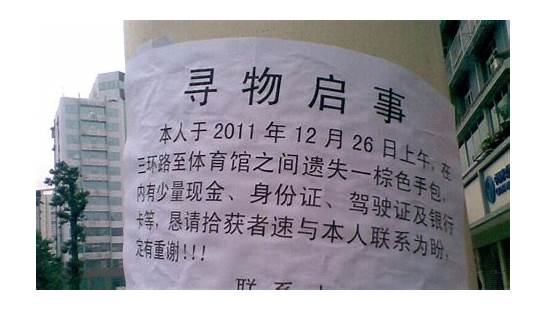 寻物启事
本人于2011年12月26日上午,在
三环路至体育馆之间遗失一棕色手包,
内有少量现金、身份证、驾驶证及银行
卡等,恳请拾获者速与本人联系为盼,
定有重谢!!!
联系